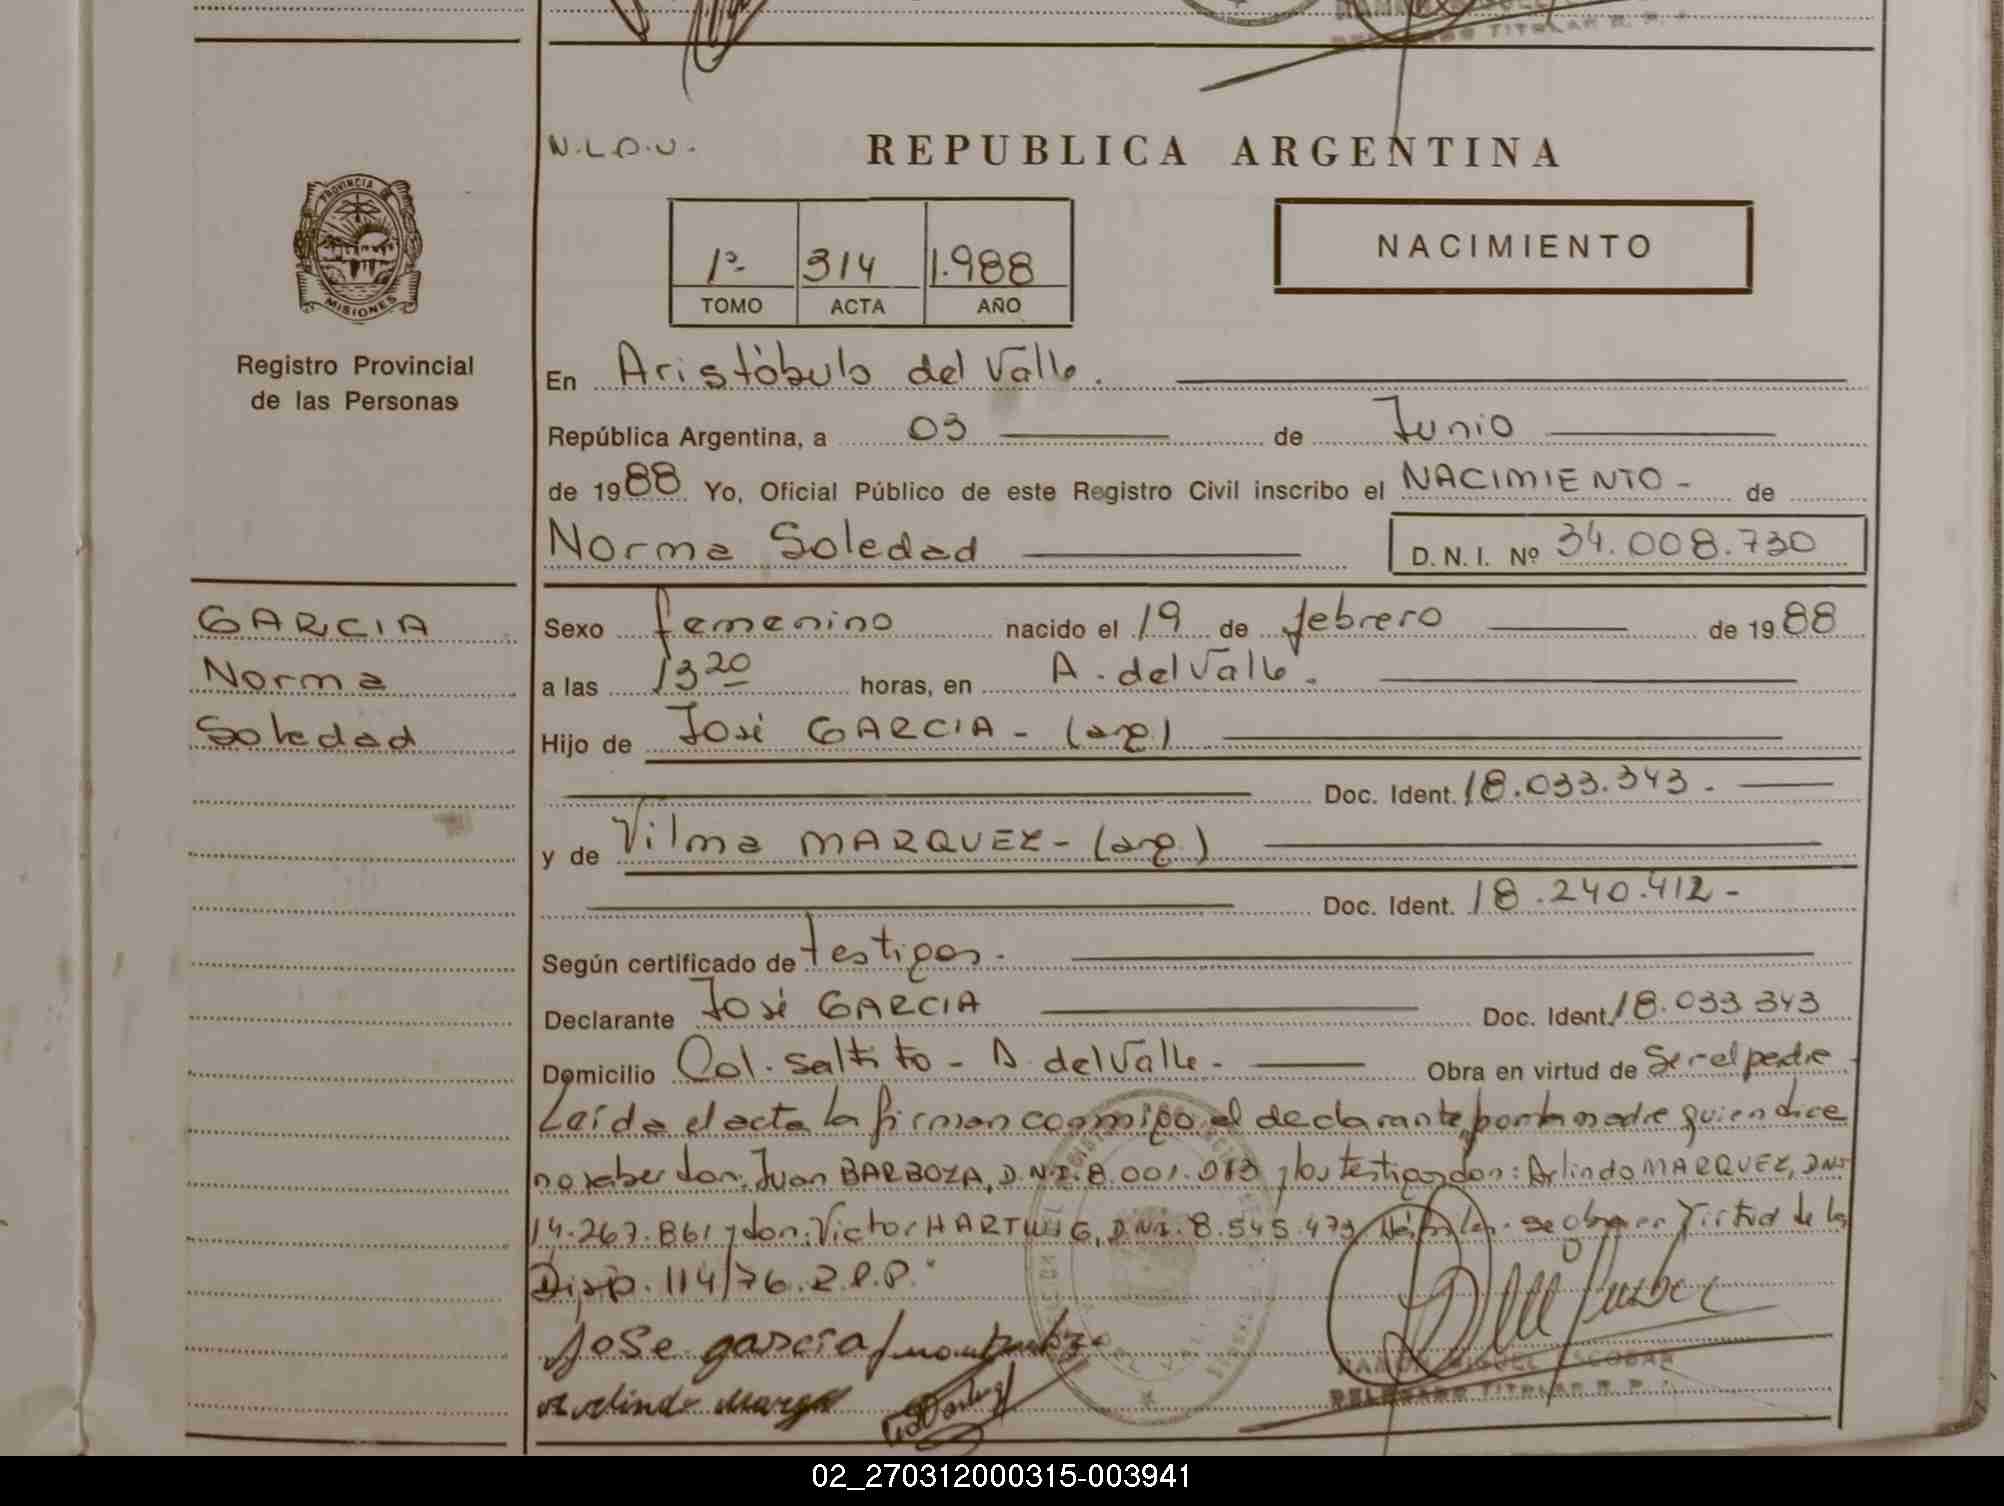 N.L.D.U.
REPUBLICA ARGENTINA
PROVINCIA DE
MISIONES
Registro Provincial
de las Personas
1º 314 1.988
TOMO ACTA AÑO
NACIMIENTO
En Aristóbulo del Valle.
República Argentina, a 03 de Junio
de 1988 Yo, Oficial Público de este Registro Civil inscribo el NACIMIENTO - de
Norma Soledad D.N.I. Nº 34.008.730
GARCIA
Norma
Soledad
Sexo femenino nacido el 19 de febrero de 1988
a las 13 20 horas, en A. del Valle.
Hijo de José GARCIA - (arg.)
Doc. Ident. 18.033.343.
y de Vilma MARQUEZ - (arg.)
Doc. Ident. 18.240.412-
Según certificado de testigos.
Declarante José GARCIA Doc. Ident. 18.033.343
Domicilio Col. saltito - A. del Valle. Obra en virtud de Ser el padre
Leída el acta la firman conmigo el declarante, por la madre quien dice
no saber don: Juan BARBOZA, D.N.I. 8.001.013 y los testigos don: Arlindo MARQUEZ, DNI
14.267.861 y don: Victor HARTWIG, D.N.I. 8.545.473 se obra en Virtud de la
Disp. 114/76.R.P.P.
Jose garcia
Arlindo
RAMON MIGUEL ESCOBAR
DELEGADO TITULAR R. P.
02_270312000315-003941